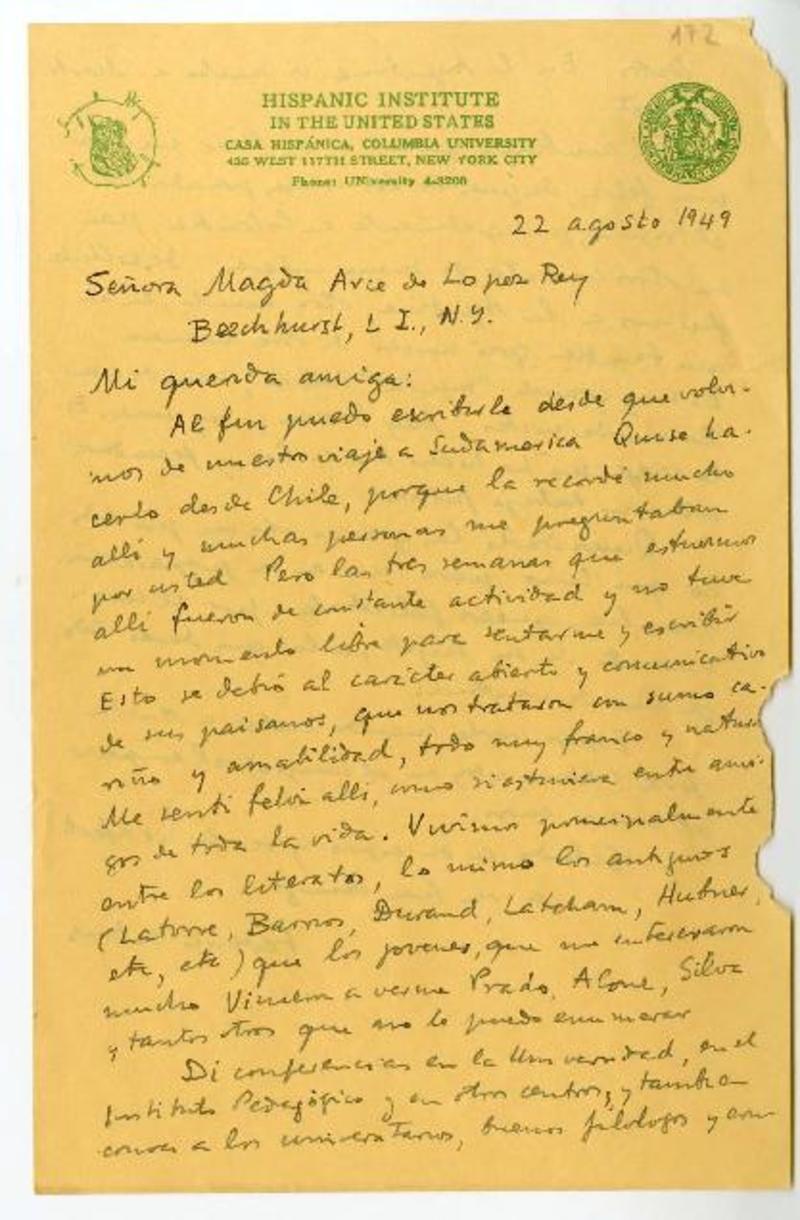 172
HISPANIC INSTITUTE
IN THE UNITED STATES
CASA HISPÁNICA, COLUMBIA UNIVERSITY
435 WEST 117TH STREET, NEW YORK CITY
Phone: UNiversity 4-3200
22 agosto 1949
Señora Magda Arce de Lopez Rey
Beechhurst, L I., N.Y.
Mi querida amiga:
Al fin puedo escribirle desde que volvi-
mos de nuestro viaje a Sudamerica Quise ha-
cerlo desde Chile, porque la recordé mucho
allí y muchas personas me preguntaban
por usted Pero las tres semanas que estuvimos
allí fueron de constante actividad y no tuve
un momento libre para sentarme y escribir
Esto se debió al carácter abierto y comunicativo
de sus paisanos, que nos trataron con sumo ca-
riño y amabilidad, todo muy franco y natural
Me sentí feliz allí, como si estuviera entre ami-
gos de toda la vida. Vivimos principalmente
entre los literatos, lo mismo los antiguos
(Latorre, Barrios, Durand, Latcham, Hubner,
etc, etc) que los jovenes, que me interesaron
mucho Vinieron a verme Prado, Alone, Silva
y tantos otros que no lo puedo enumerar
Di conferencias en la Universidad, en el
Instituto Pedagógico y en otros centros, y tambien
conocí a los universitarios, buenos filologos y